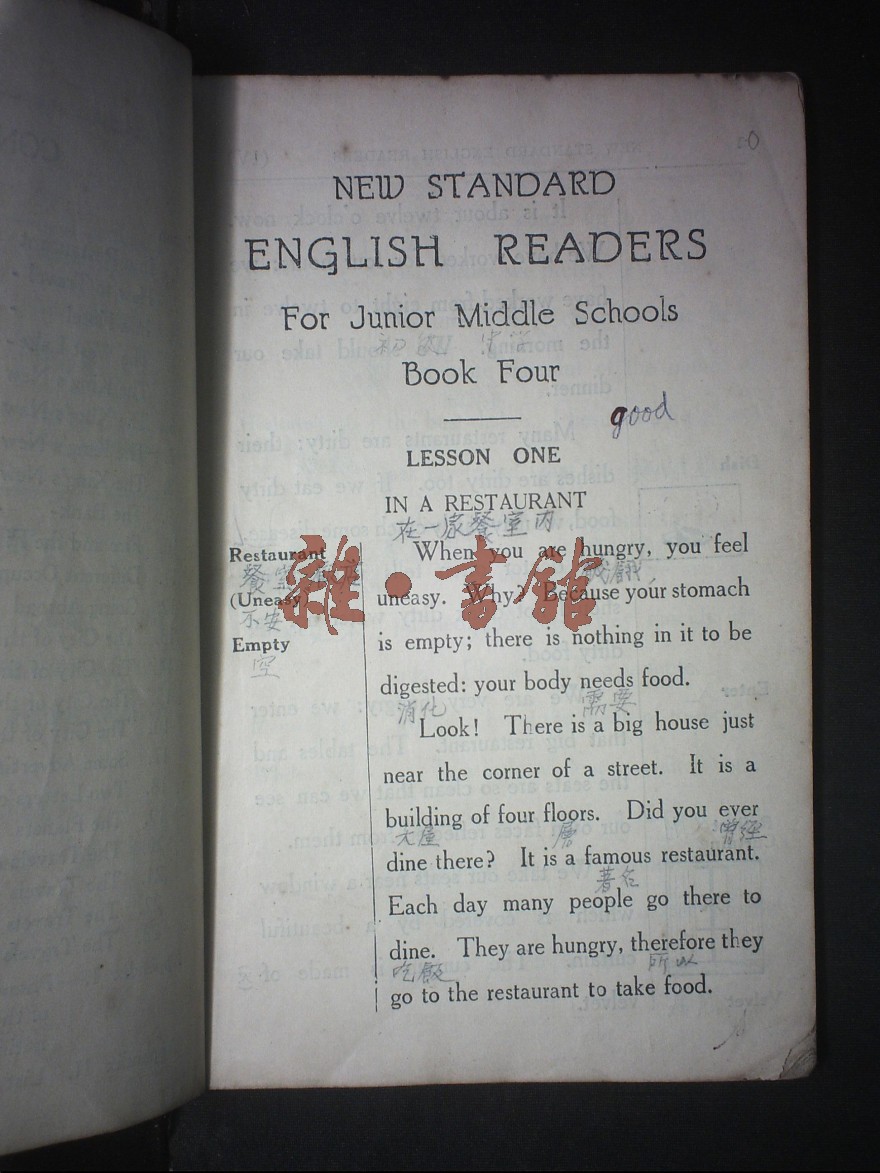 NEW STANDARD
ENGLISH READERS
For Junior Middle Schools
初級 中学
Book Four
good
LESSON ONE
IN A RESTAURANT
在一家餐室內
Restaurant
餐室
(Uneasy)
不安
Empty
空
When you are hungry, you feel
飢餓
uneasy. Why? Because your stomach
is empty; there is nothing in it to be
digested: your body needs food.
消化 需要
Look! There is a big house just
near the corner of a street. It is a
building of four floors. Did you ever
大屋 層 曾經
dine there? It is a famous restaurant.
著名
Each day many people go there to
dine. They are hungry, therefore they
吃飯 所以
go to the restaurant to take food.
雜·書館